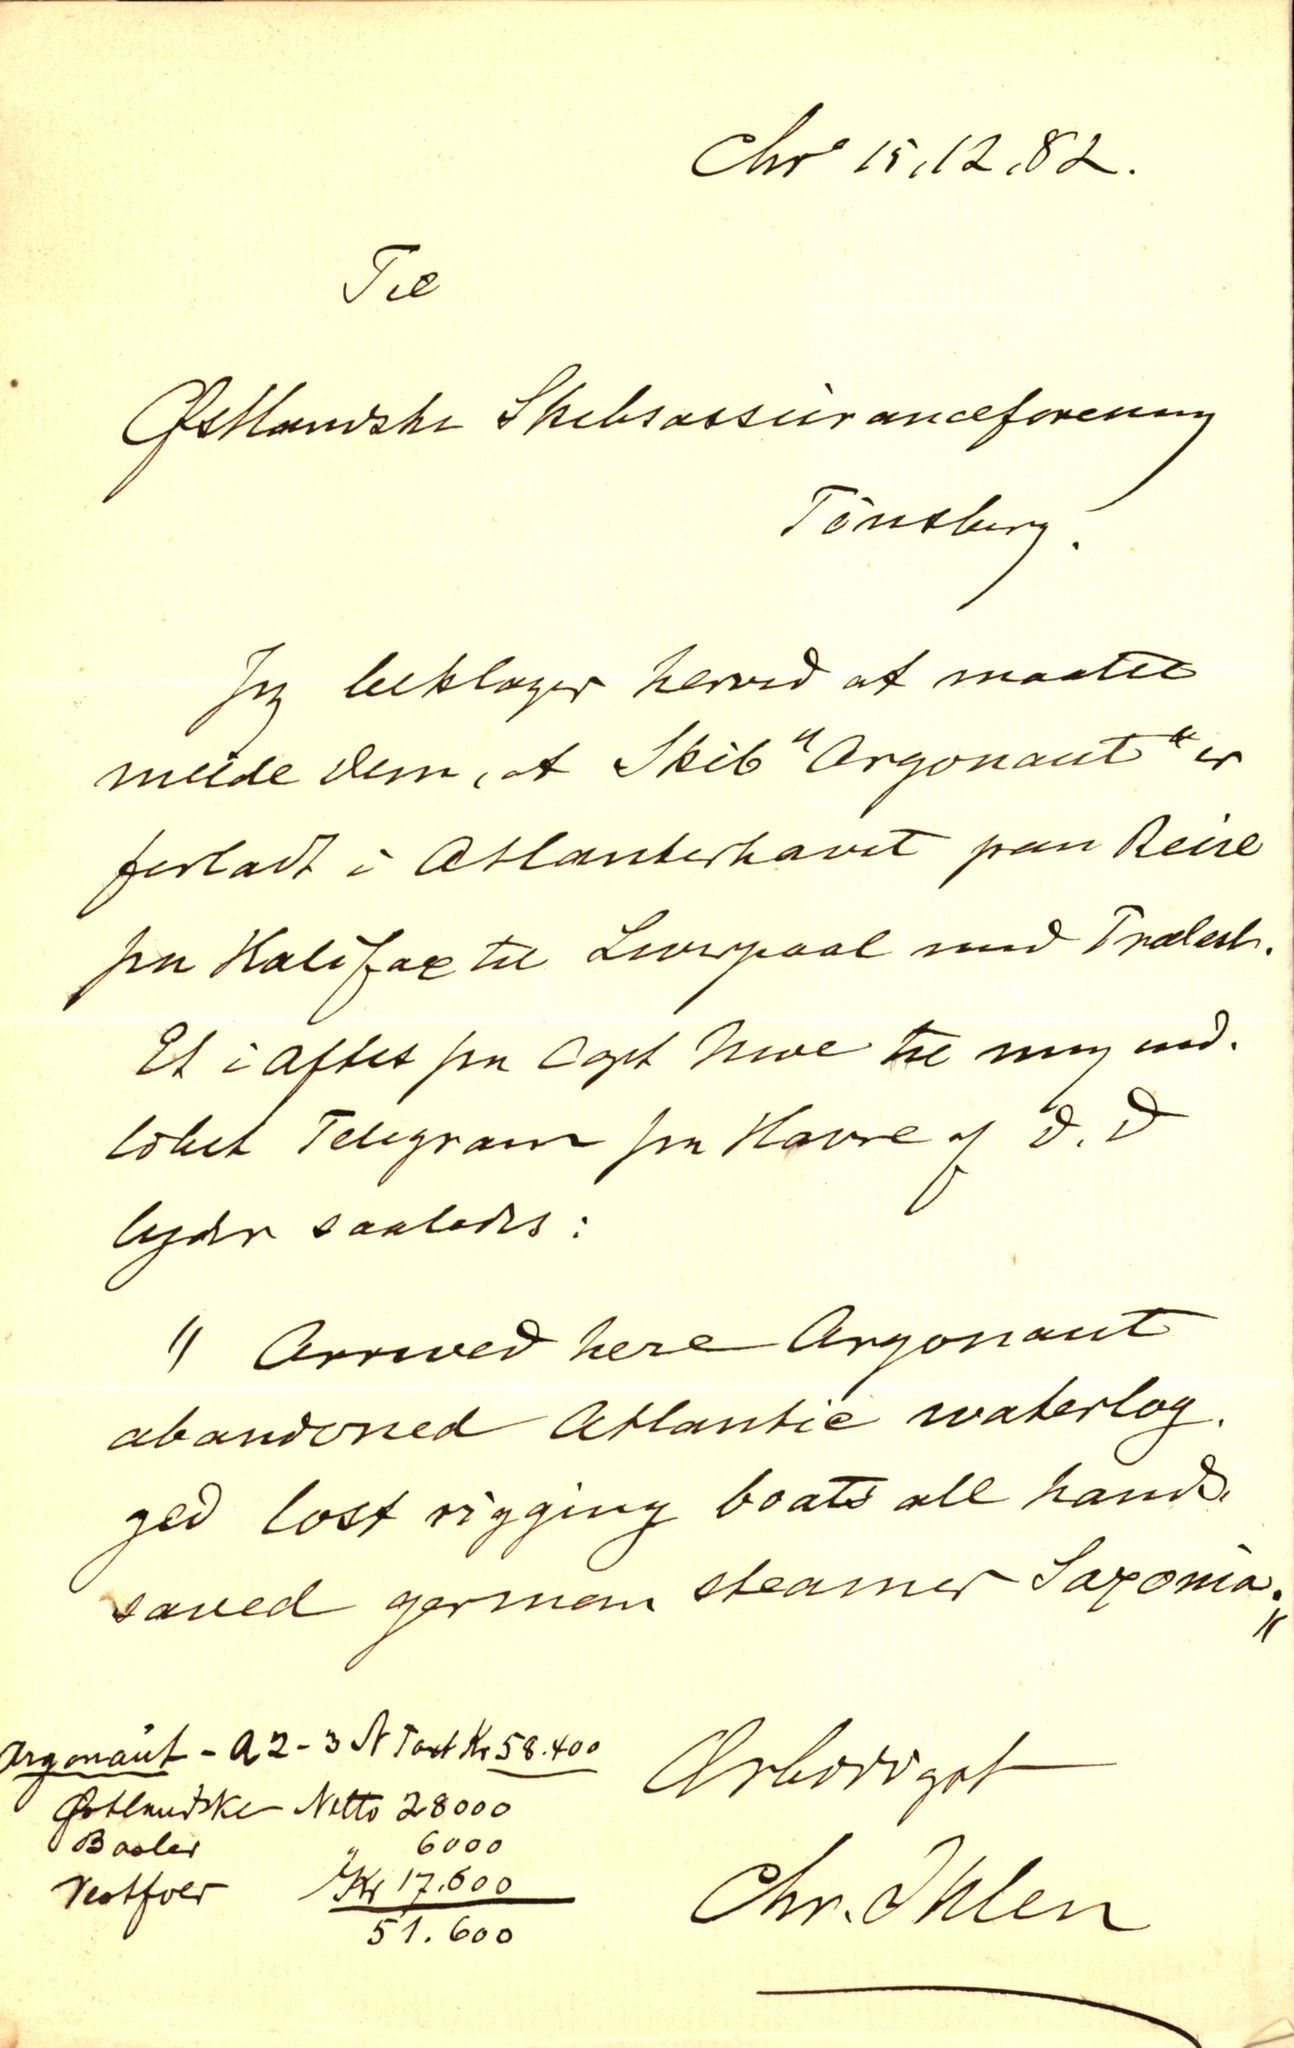 Chra 15.12.82.
Til
Østlandske Skibsassuranceforening
Tönsberg.
Jeg beklager herved at maatte
melde Dem, at Skib "Argonaut" er
forladt i Atlanterhavet paa Reise
fra Halifax til Liverpool med Trælast.
Et i Aften fra Capt Mwe til mig ind-
löbet Telegram fra Havre af D. D
lyder saaledes:
" Arrived here Argonaut
abandoned Atlantic waterlog-
ged lost rigging boats all hands.
saved german steamer Saxonia."
Ærbödigst
Chr. Ihlen
Argonaut - A 2 - 3 N Taxt Kr 58.400
Østlandske Netto 28000
Basler " 6000
Vestfoer Kr 17.600
51.600